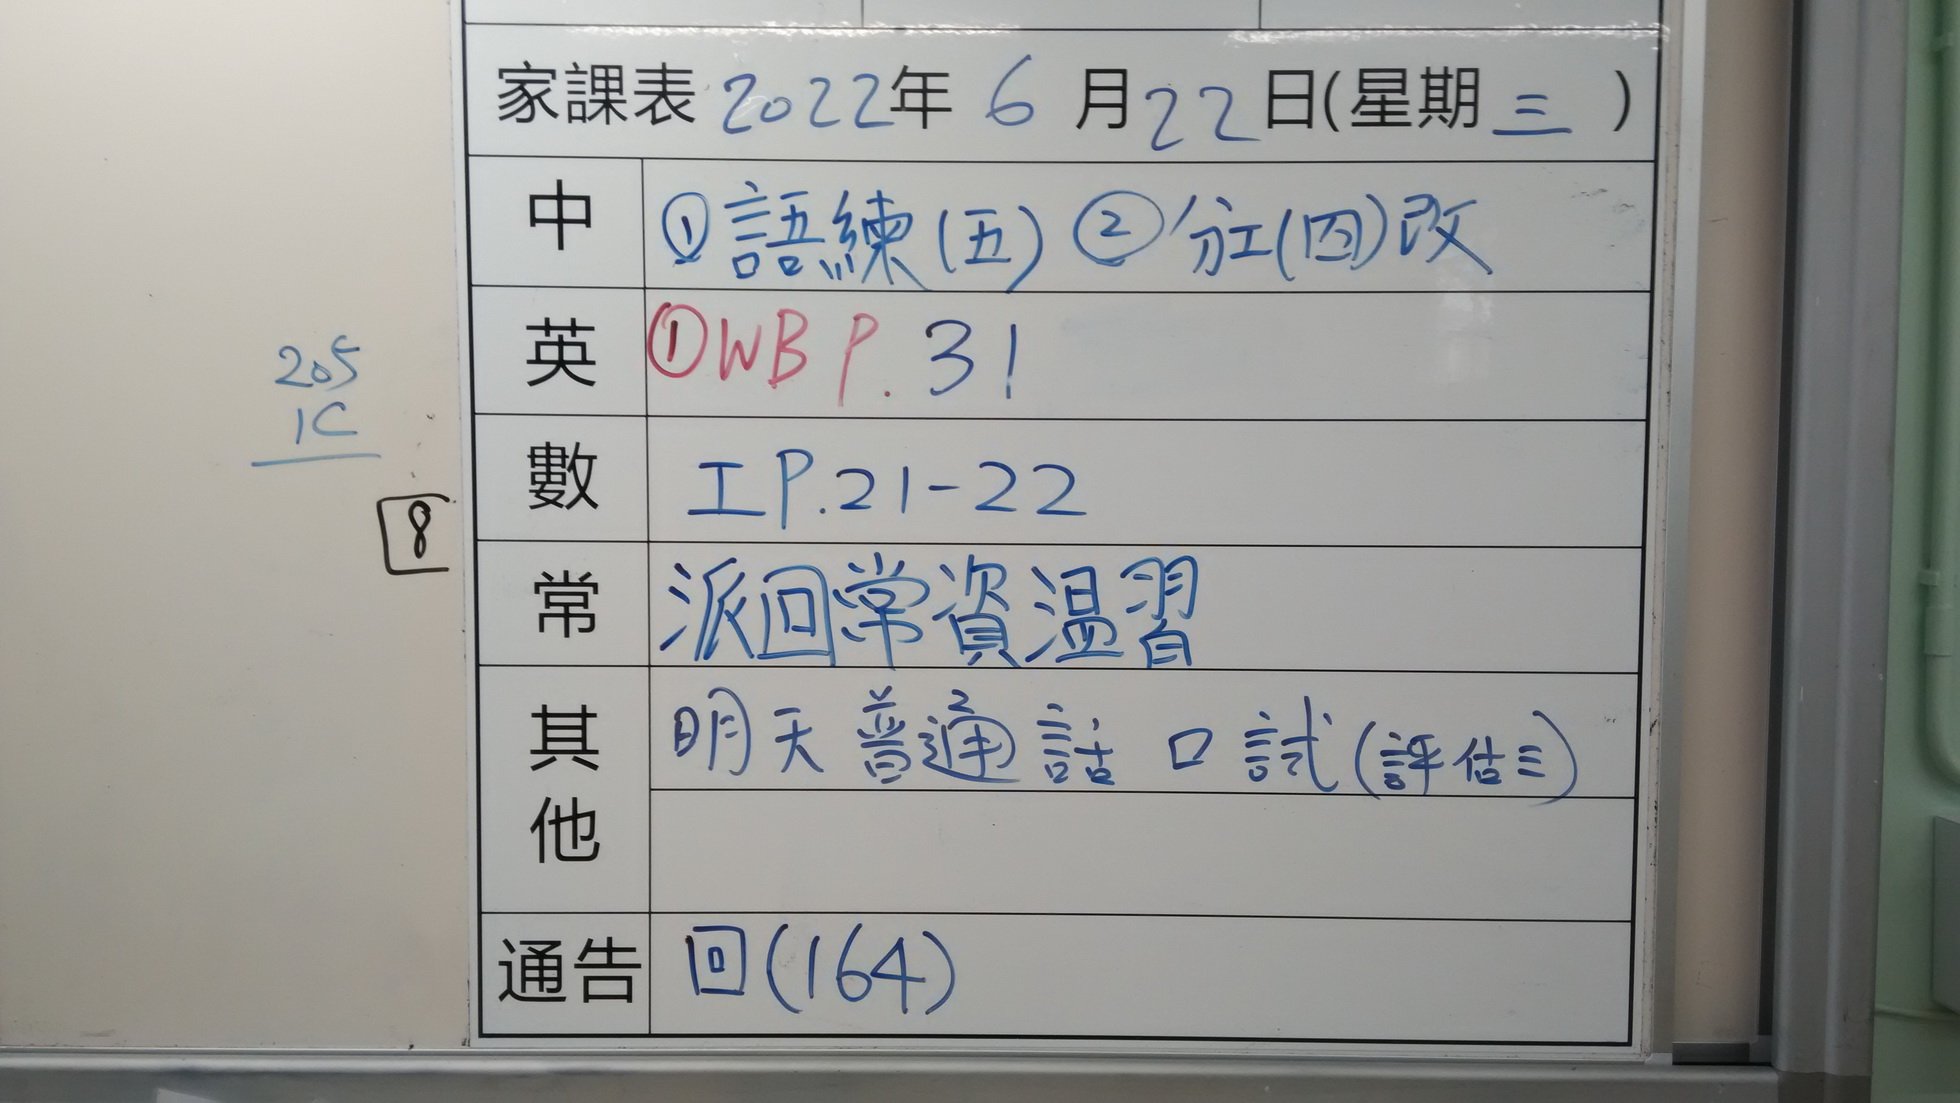 家課表 2022年 6 月 22 日(星期 三 )
中 ①語練(五) ②分工(四)改
英 ①WB P. 31
數 工 P.21-22
常 派回常資溫習
其他 明天普通話口試(評估三)
通告 回(164)
205
1C
8